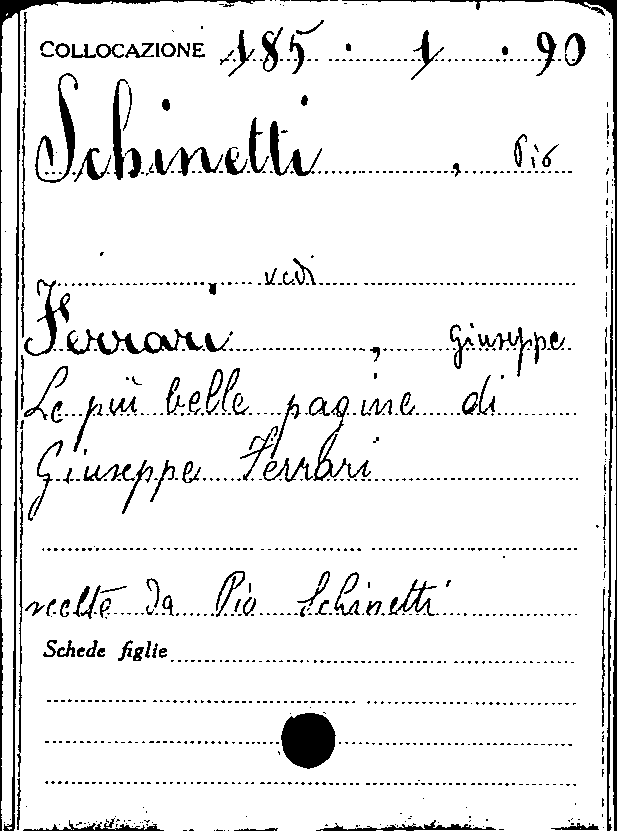 COLLOCAZIONE 185 . 1 . 90
Schinetti , Pio
vedi
Ferrari , Giuseppe
Le più belle pagine di
Giuseppe Ferrari
scelte da Pio Schinetti
Schede figlie